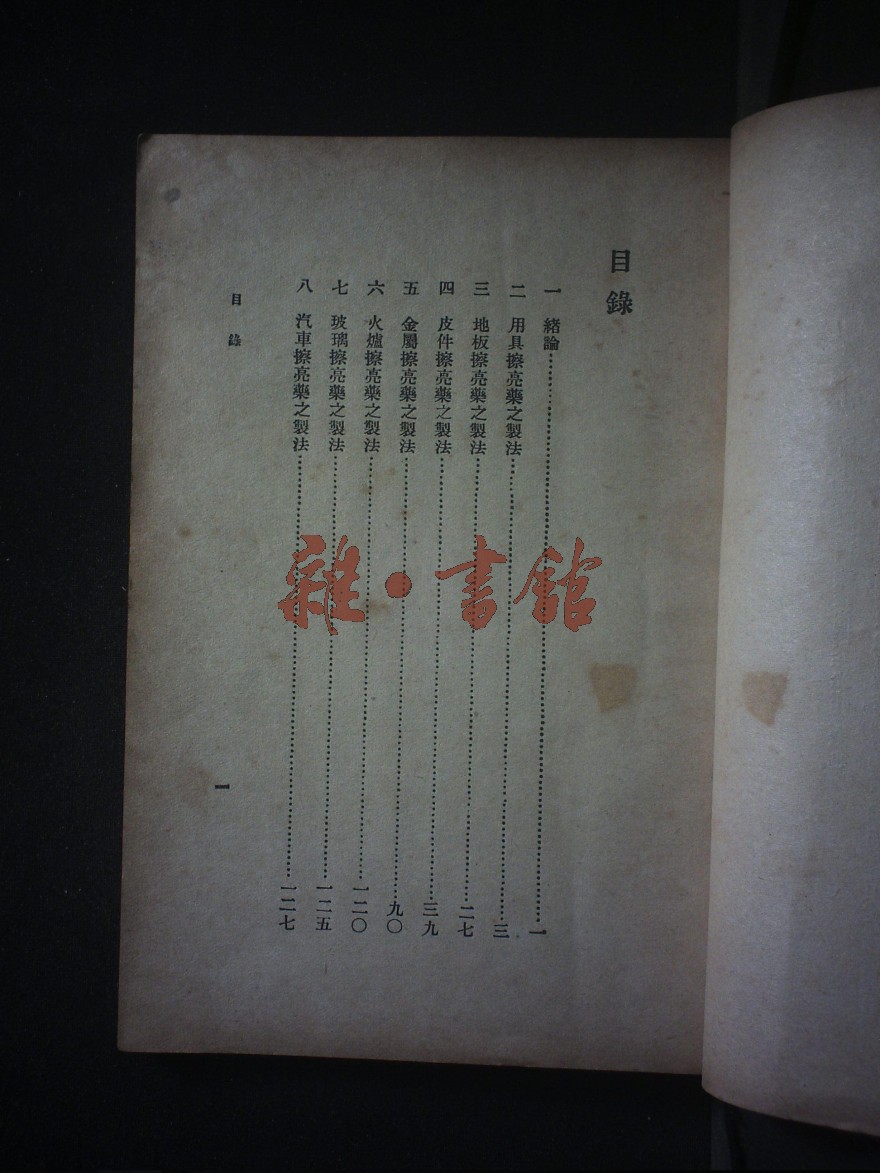 目錄
一 緒論……一
二 用具擦亮藥之製法……三
三 地板擦亮藥之製法……二七
四 皮件擦亮藥之製法……三九
五 金屬擦亮藥之製法……九〇
六 火爐擦亮藥之製法……一二〇
七 玻璃擦亮藥之製法……一二五
八 汽車擦亮藥之製法……一二七
目錄
一
雜·書館